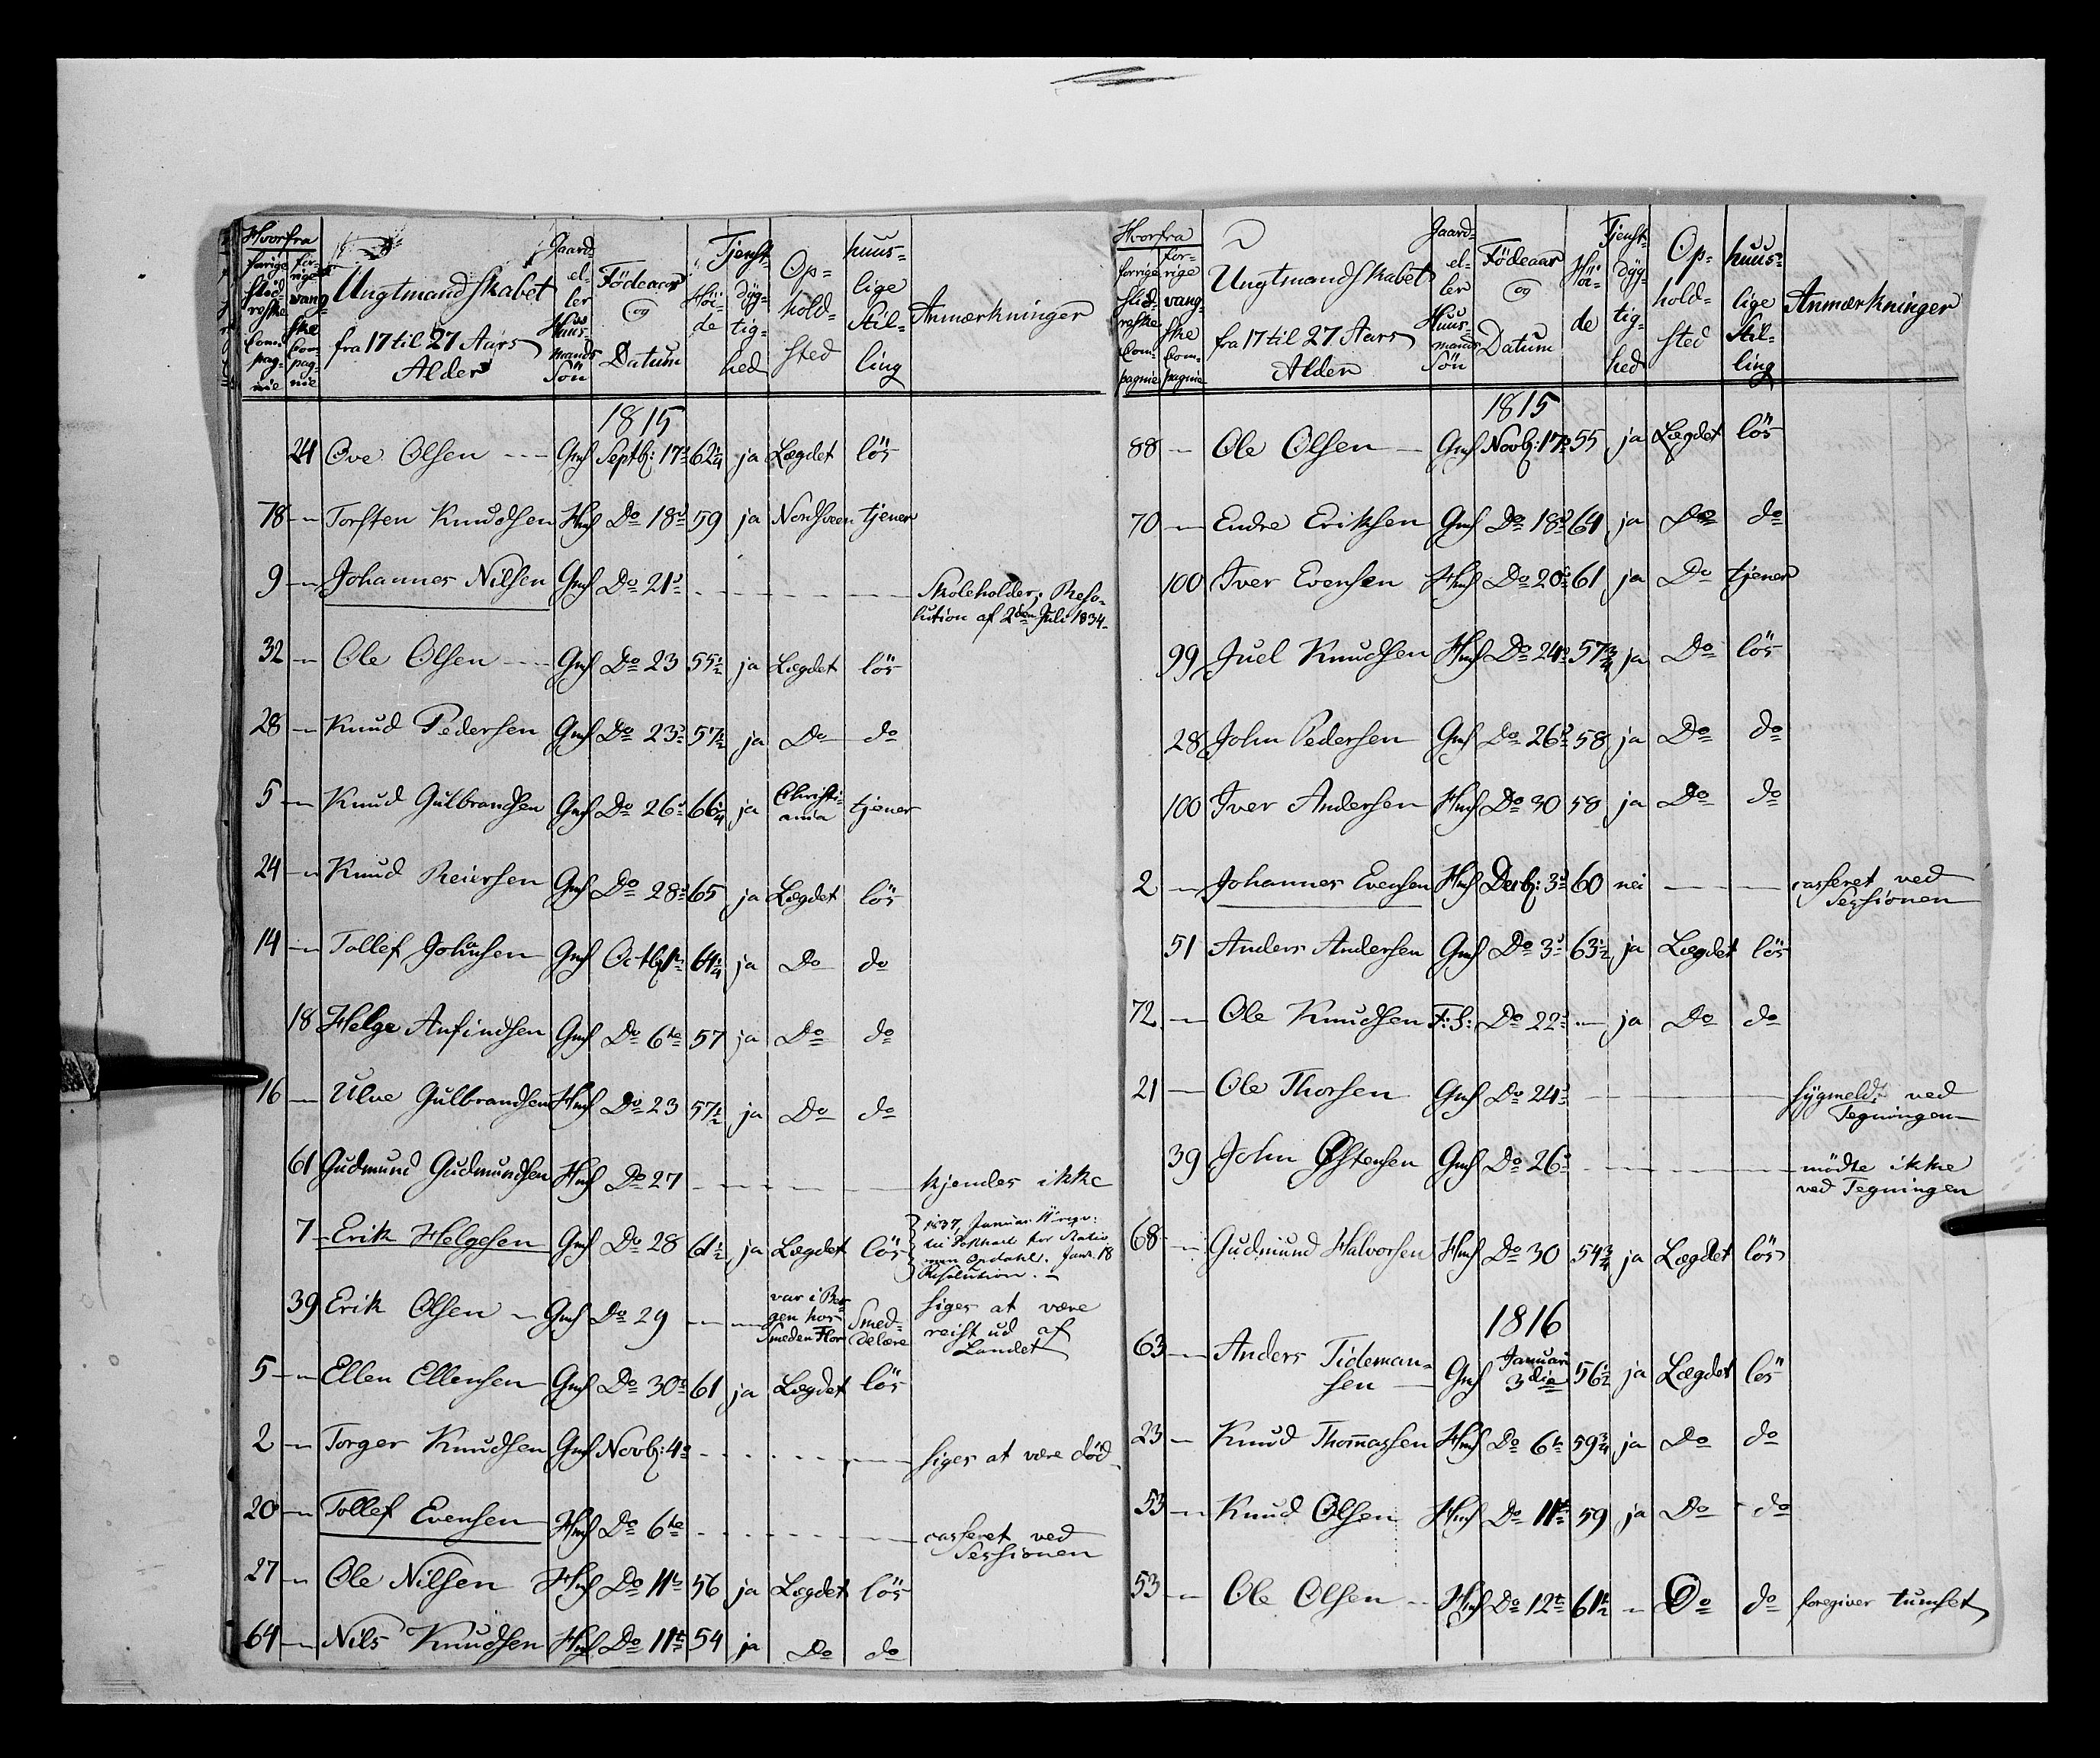 Hvorfra
forrige Slidreske Compagnie | forrige vangske Compagnie | Ungtmandskabet fra 17 til 27 Aars Alder | Gaard- eller Huusmands Sön | Födeaar og Datum | Höide | Tjenstdygtighed | Ophold-sted | huuslige Stilling | Anmærkninger
1815
24 Ove Olsen --- Gms Septb: 17de 62¼ ja Lægdet lös
78 — Torsten Knudsen Hms Do 18de 59 ja tjener
9 — Johannes Nilsen Gms Do 21de — Skoleholder; Reso-
lution af 2den Juli 1834
32 — Ole Olsen --- Gms Do 23 55½ ja Lægdet lös
28 — Knud Pedersen Gms Do 23de 57½ ja Do do
5 — Knud Gulbrandsen Gms Do 26de 66¼ ja Christi-
ania tjener
24 — Knud Reiersen Gms Do 28de 65 ja Lægdet lös
14 — Tollef Johansen Gms Octb: 1te 64¼ ja Do do
18 Helge Anfindsen Gms Do 6te 57 ja Do do
16 — Ulve Gulbrandsen Hms Do 23 57½ ja Do do
61 Gudmund Gudmundsen Hms Do 27 — kjendes ikke
7 — Erik Helgesen Gms Do 28 61½ ja Lægdet lös 1837, Januar 11
Opdahl. Janr. 18
Resolution. —
39 Erik Olsen — Gms Do 29 — var i Ber-
gen hos
Smeden Flor Smed-
delære siges at være
reist ud af
Landet
5 — Ellen Ellensen Gms Do 30de 61 ja Lægdet lös
2 — Torger Knudsen Gms Novb: 4de — siges at være död
20 — Tollef Evensen Hms Do 6te — casseret ved
Sessionen
27 — Ole Nilsen Hms Do 11te 56 ja Lægdet lös
64 — Nils Knudsen Hms Do 11te 54 ja Do do
Hvorfra
forrige Slidreske Compagnie | forrige vangske Compagnie | Ungtmandskabet fra 17 til 27 Aars Alder | Gaard- eller Huusmands Sön | Födeaar og Datum | Höide | Tjenstdygtighed | Ophold-sted | huuslige Stilling | Anmærkninger
1815
88 — Ole Olsen — Gms Novb: 17de 55 ja Lægdet lös
70 — Endre Eriksen Gms Do 18de 64 ja Do do
100 Iver Evensen Hms Do 20de 61 ja Do tjener
99 Juel Knudsen Hms Do 24de 57¾ ja Do lös
28 John Pedersen Gms Do 26de 58 ja Do do
100 Iver Andersen Hms Do 30 58 ja Do do
2 — Johannes Evensen Hms Decb: 3de 60 nei — casseret ved
Sessionen
51 Anders Andersen Gms Do 3de 63½ ja Lægdet lös
72 — Ole Knudsen F:S: Do 22de — ja Do do
21 — Ole Thorsen Gms Do 24de — sygmeldt ved
Tegningen
39 John Østensen Gms Do 26de — mödte ikke
ved Tegningen
68 — Gudmund Halvorsen Hms Do 30 54¾ ja Lægdet lös
1816
63 — Anders Tideman-
sen — Gms Januari
3die 56½ ja Lægdet lös
23 — Knud Thomassen Hms Do 6te 59¾ ja Do do
53 — Knud Olsen Hms Do 11te 59 ja Do do
53 — Ole Olsen — Hms Do 12te 61½ — Do do foregiver tumset